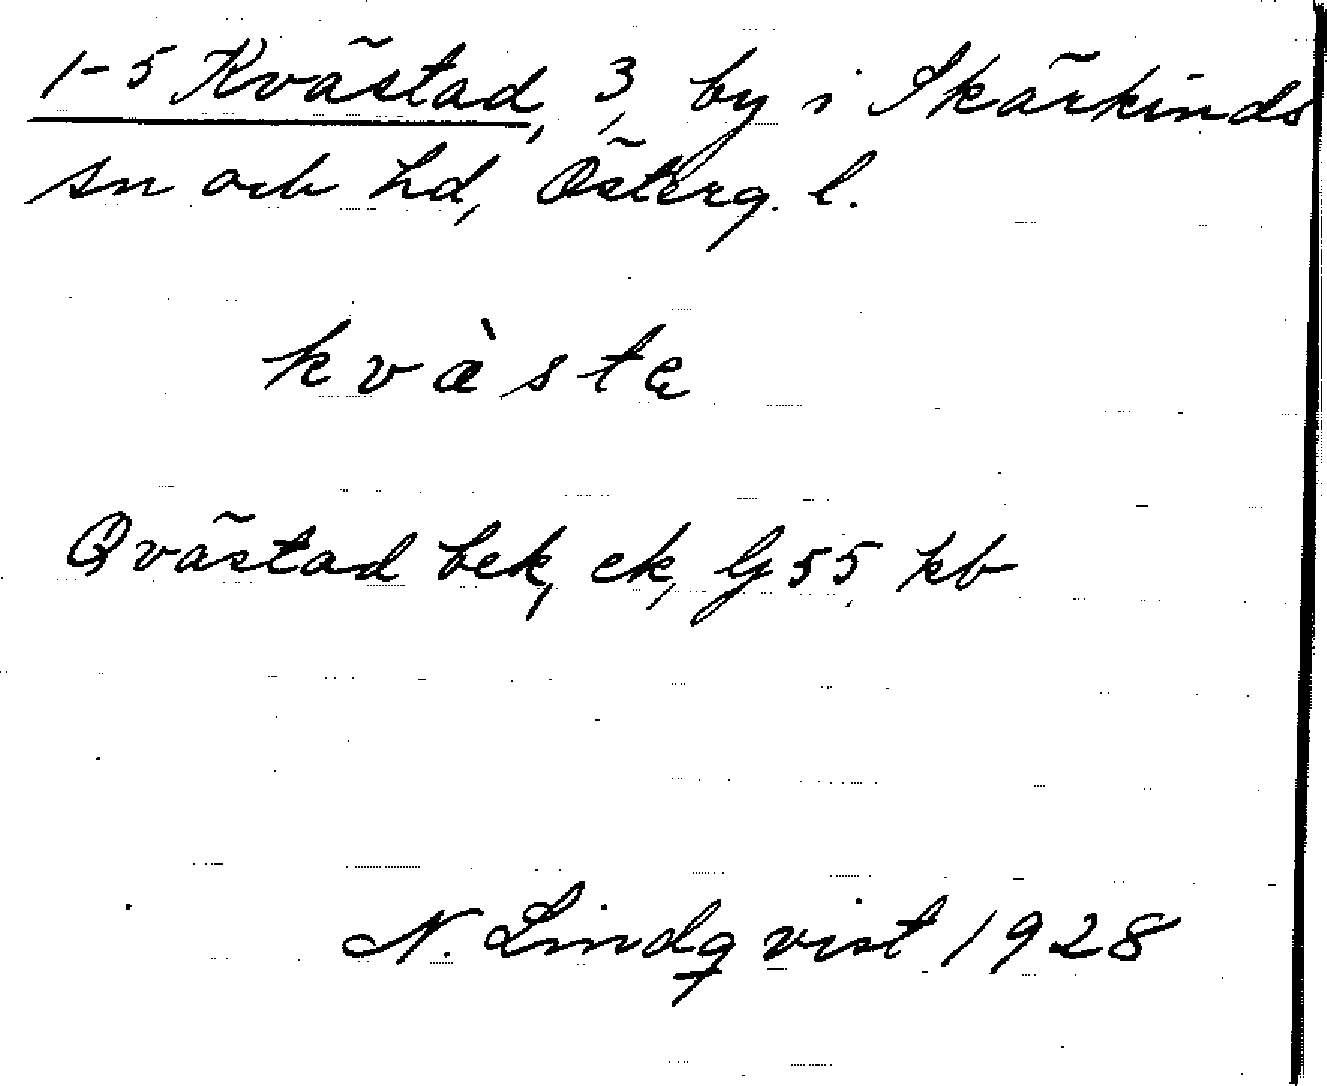 1-5 Kvästad, 3, by i Skärkinds
sn och hd, Österg. l.
kvæ̀sta
Qvästad bek, ek, Gj 55 kb
N. Lindqvist 1928